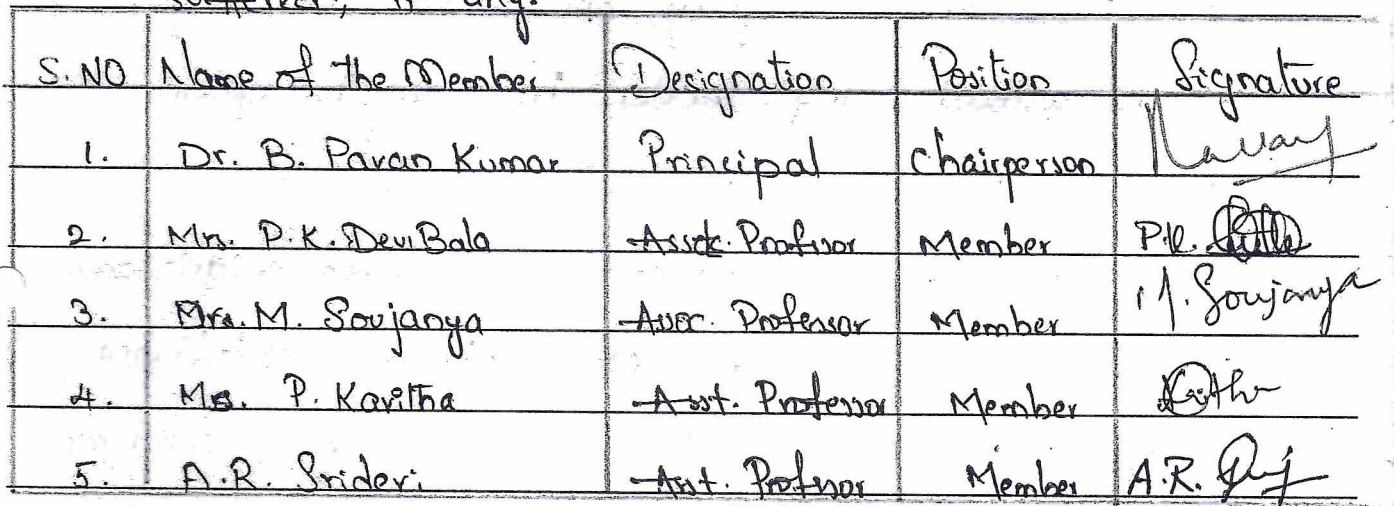 any.
S. NO Name of the Member Designation Position Signature
1. Dr. B. Pavan Kumar Principal Chairperson
2. Mrs. P.K. Devi Bala Professor Member P.K.
3. Mrs. M. Soujanya Assoc. Professor Member M. Soujanya
4. P. Kavitha Asst. Professor Member
5. A.R. Sridevi Asst. Professor Member A.R.